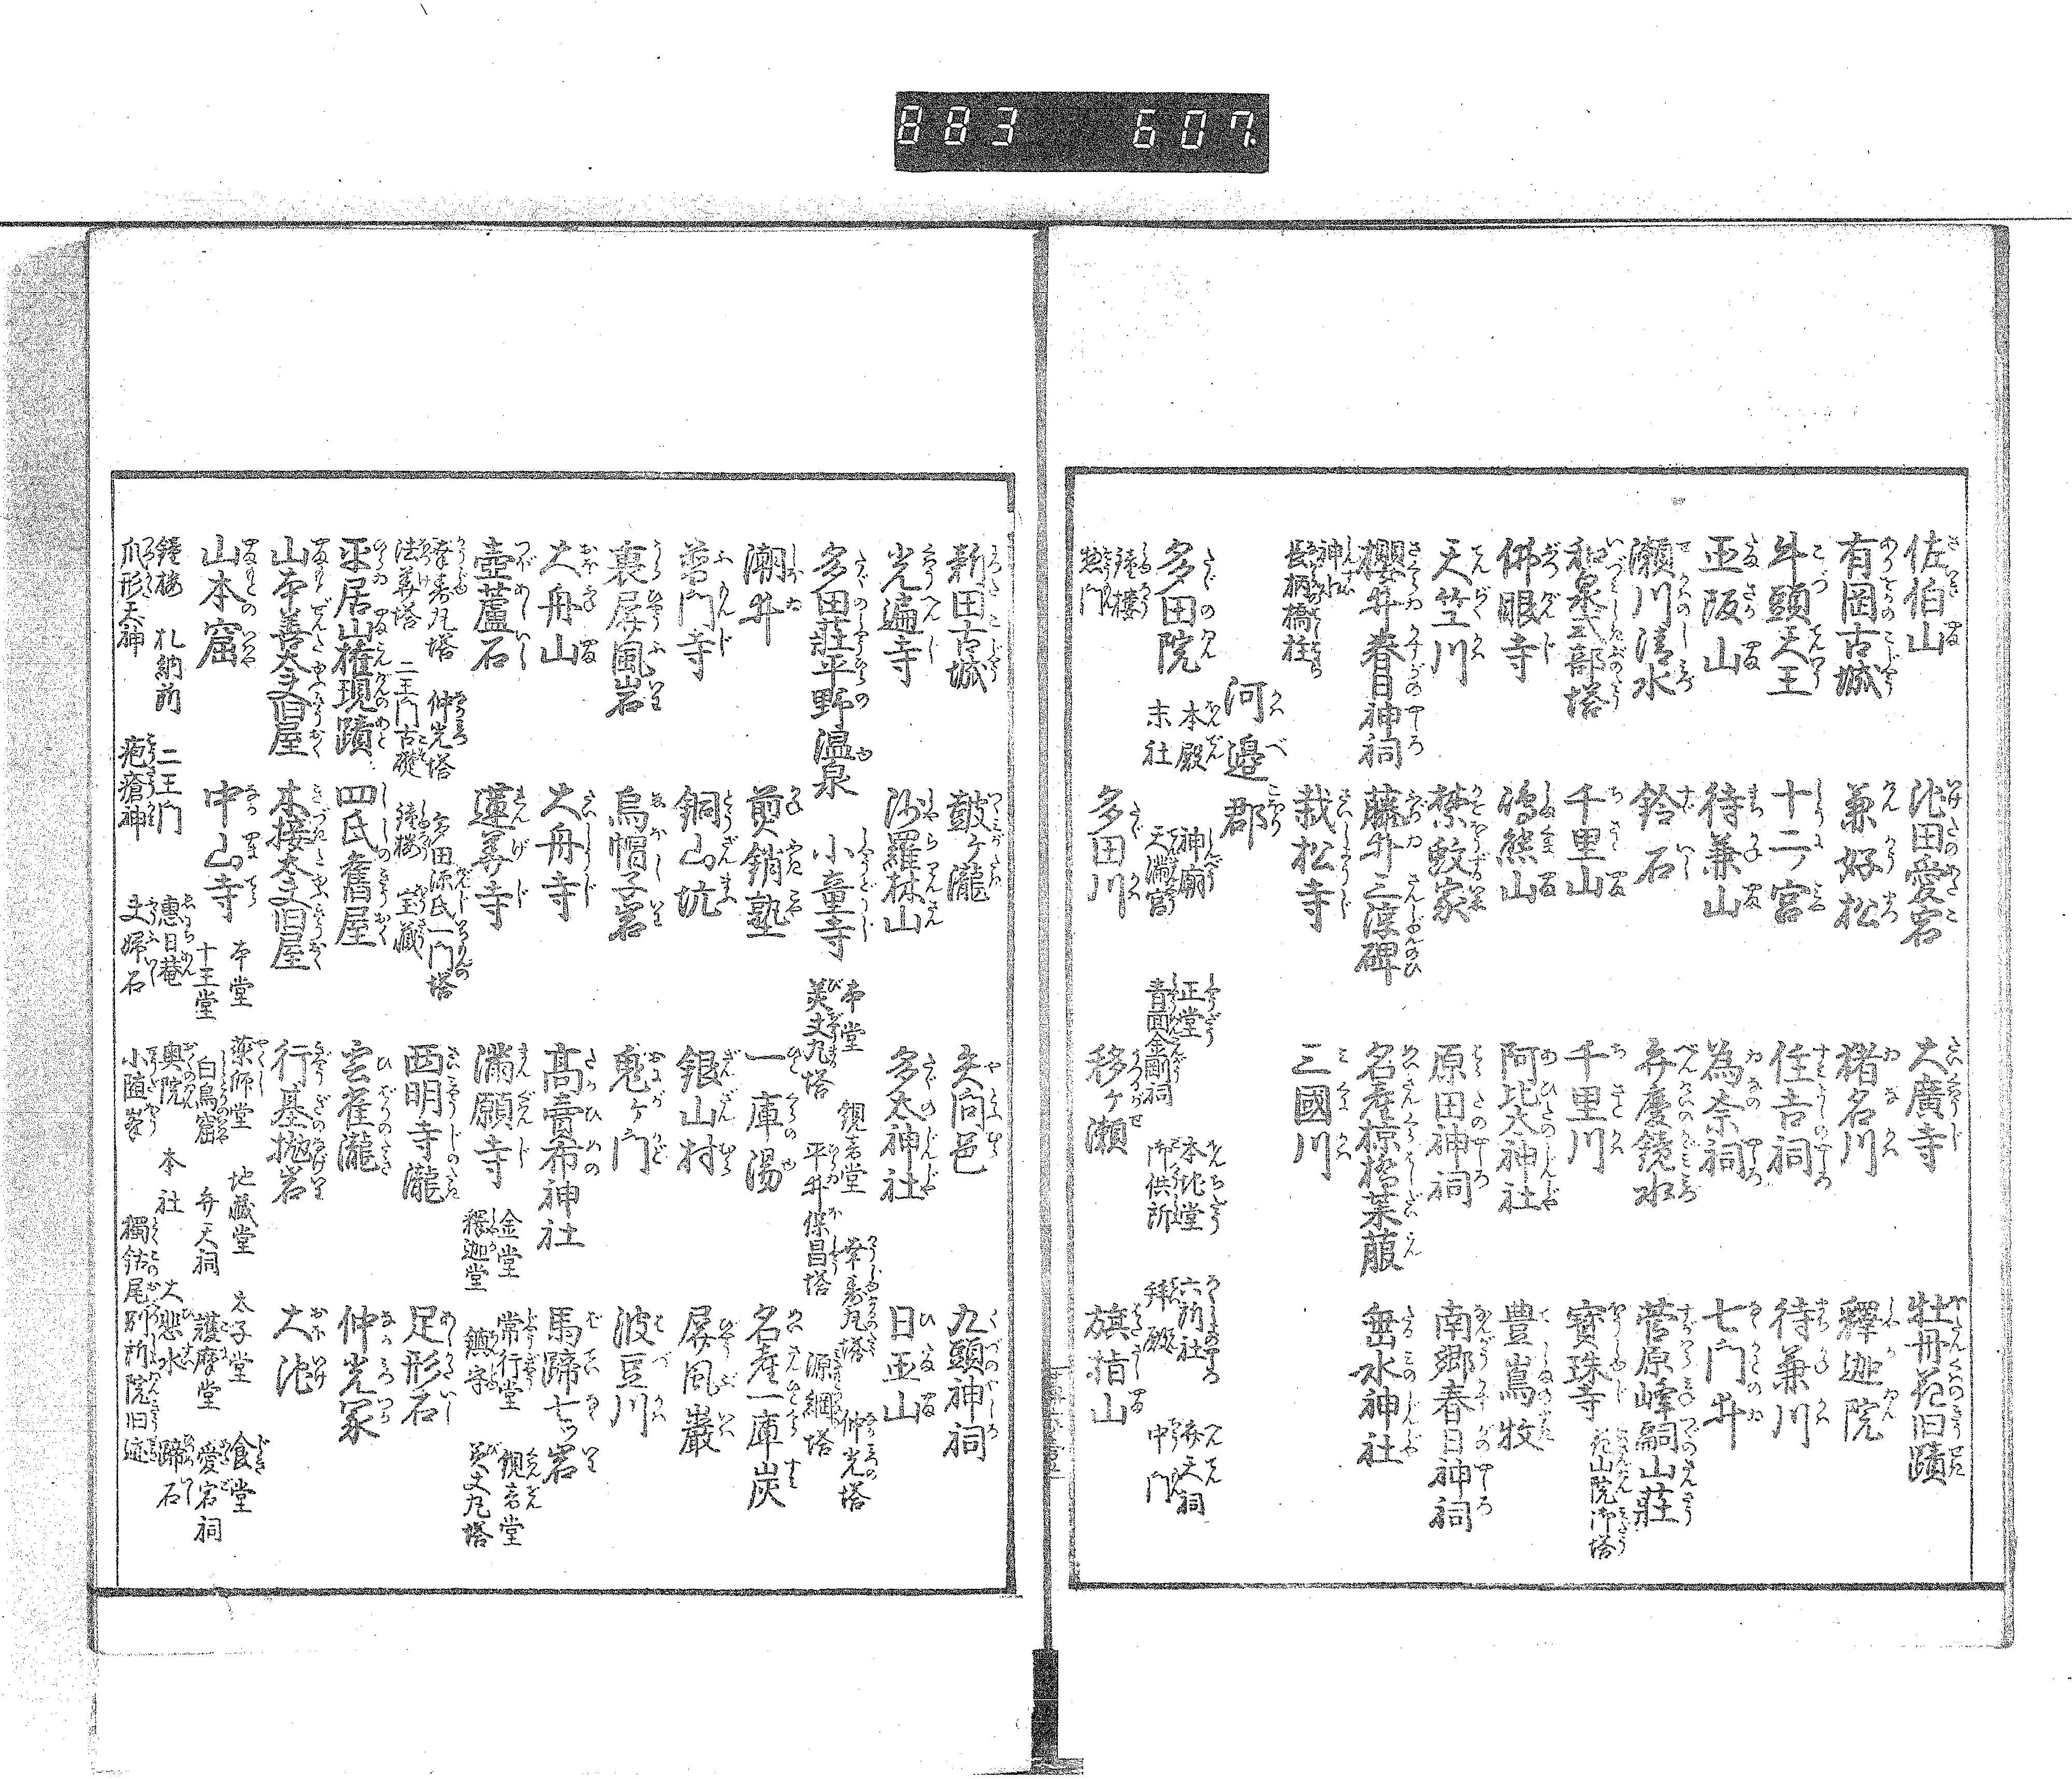 883 607
佐伯山 池田愛宕 大廣寺 牡丹花旧蹟
有岡古城 兼好松 猪名川 釋迦院
牛頭天王 十二ノ宮 住吉祠 待兼川
玉阪山 待兼山 為奈祠 七ツ門井
瀬川清水 鈴石 弁慶鏡水 菅原峰嗣山荘
和泉式部塔 千里山 千里川 寶珠寺 花山院御塔
佛眼寺 嶋熊山 阿比太神社 豊嶌牧
天竺川 原田神祠 南郷春日神祠
櫻井春日神祠 藤井三淳碑 名産椋橋莱菔 垂水神社
神木
長柄橋柱 栽松寺 三國川
河邉郡
多田院 本殿 神廟 正堂 本地堂 六所社 弁天祠
末社 天満宮 青面金剛祠 御供所 拜殿 中門
鐘樓
惣門 多田川 移ヶ瀬 旗指山
新田古城 皷ヶ瀧 矢問邑 九頭神祠
光遍寺 沙羅林山 多太神社 日亚山
多田荘平野温泉 小童寺 本堂 観音堂 幸寿丸塔 仲光塔
美丈丸塔 平井保昌塔 源綱塔
潮井 煎銷塾 一庫湯 名産一庫炭
普門寺 銅山坑 銀山村 屏風巖
裏屏風岩 烏帽子岩 鬼ヶ門 波豆川
大舟山 大舟寺 髙賣布神社 馬蹄七ッ岩
壺蘆石 蓮華寺 満願寺 金堂 常行堂 観音堂
釋迦堂 鎮守 美丈丸塔
幸寿丸塔 仲光塔 多田源氏一門塔
法華塔 二王門古礎 鐘楼 宝蔵 西明寺瀧 足形石
平居山権現蹟 四氏舊屋 雲雀瀧 仲光冢
山本善太夫旧屋 木接太夫旧屋 行基抛岩 大池
山本窟 中山寺 本堂 薬師堂 地蔵堂 太子堂 食堂
十王堂 白鳥窟 弁天祠 護摩堂 愛宕祠
鐘楼 札納所 二王門 惠日菴 奥院 本社 大悲水 蹄石
爪形天神 疱瘡神 夫婦石 小随峯 獨鈷尾 別所院旧迹